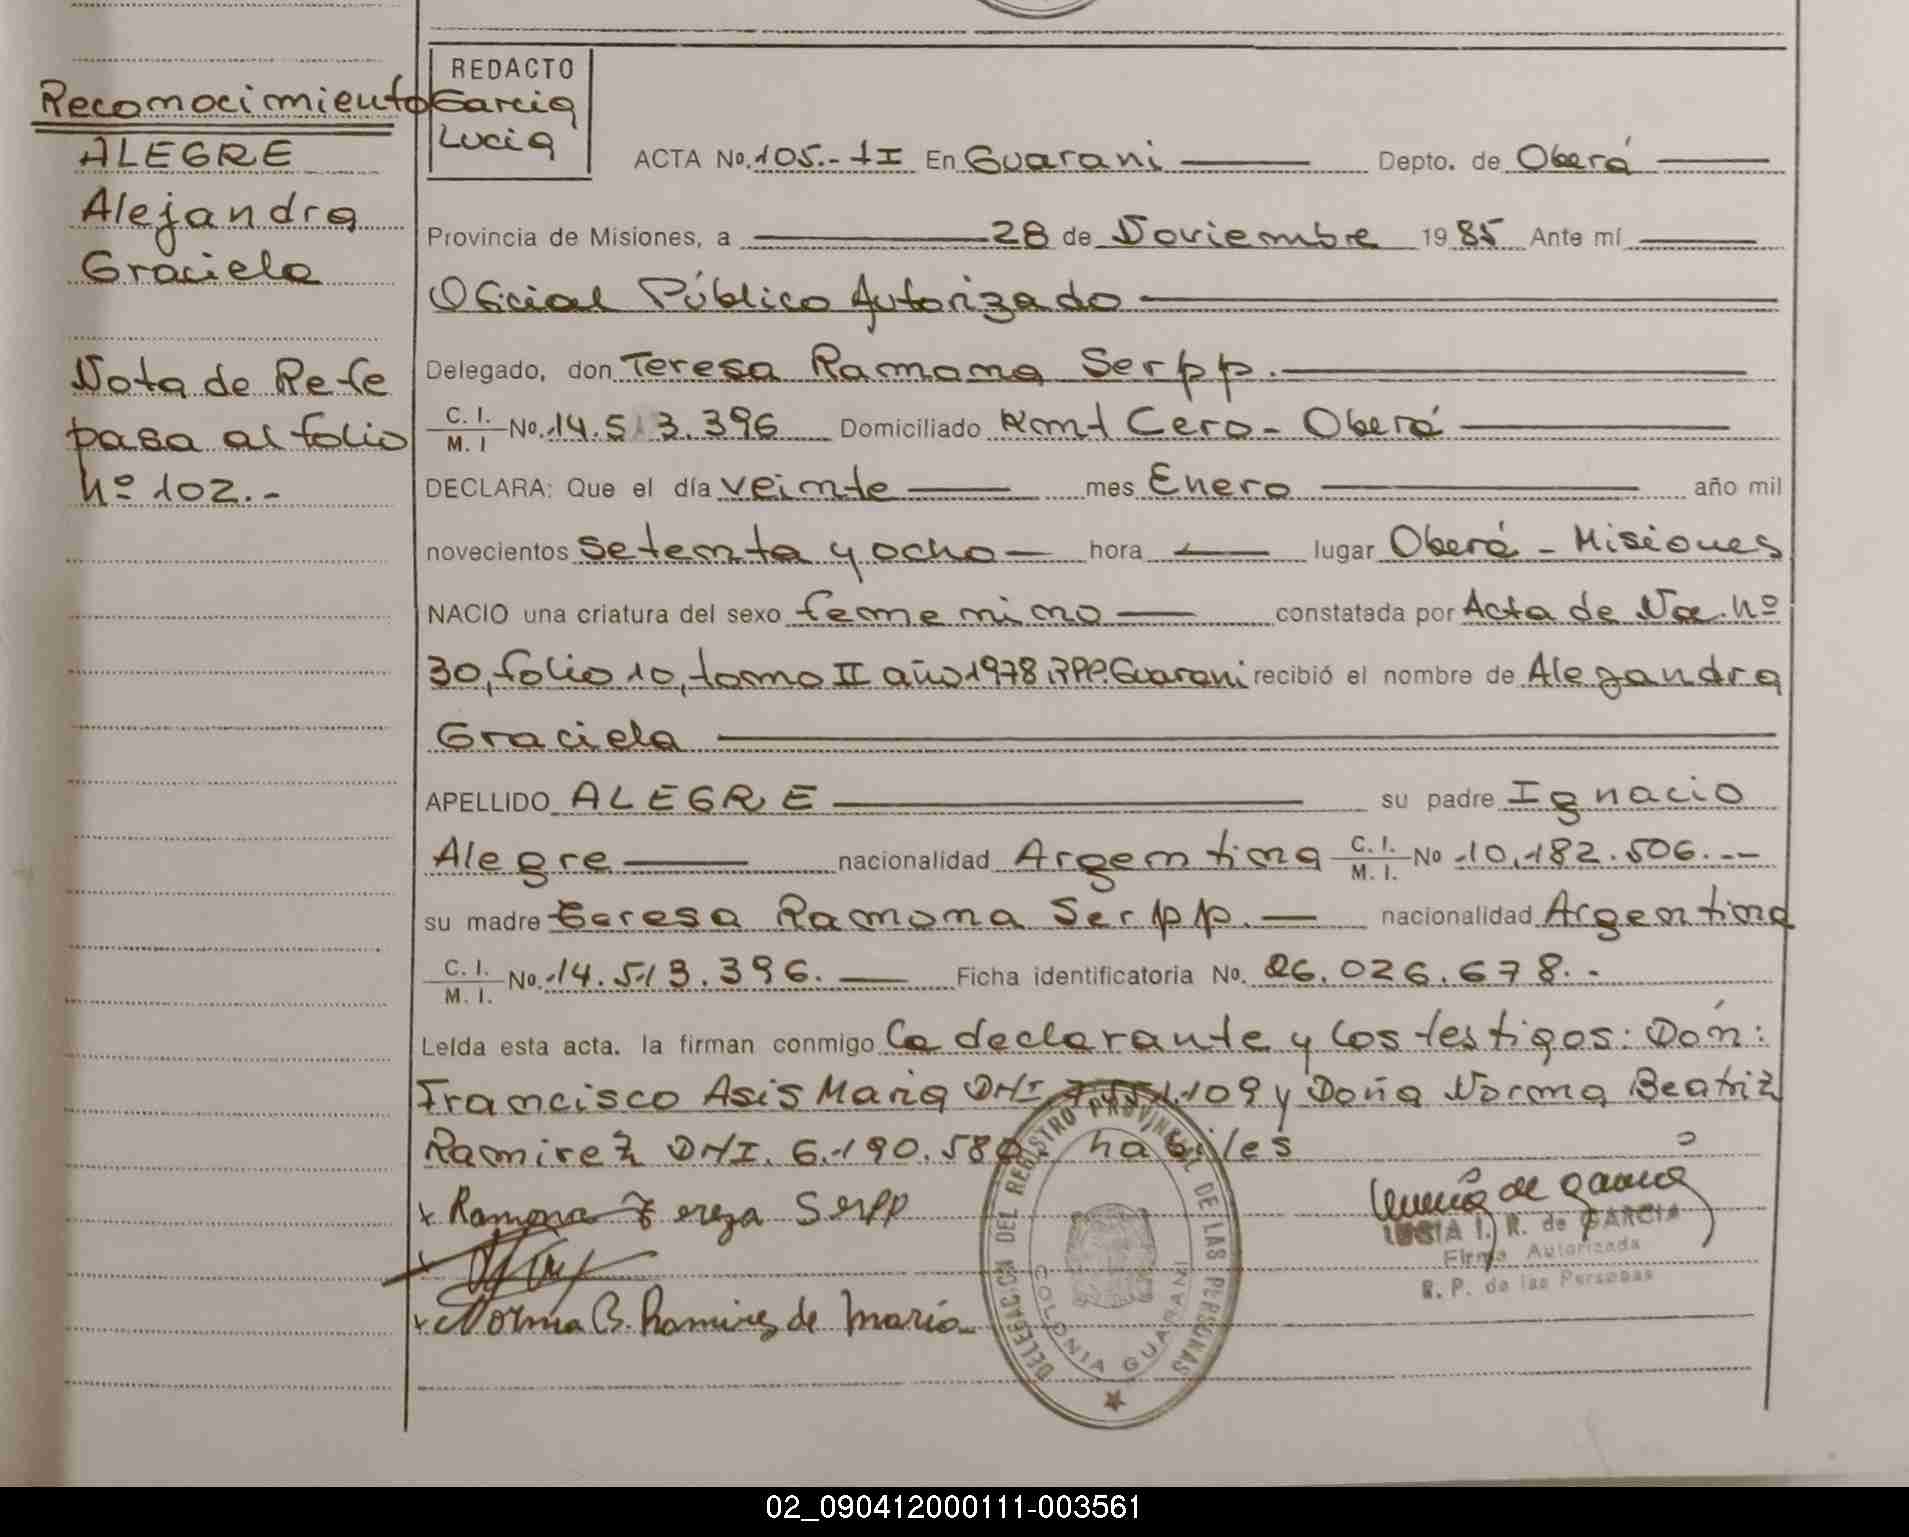 Reconocimiento
ALEGRE
Alejandra
Graciela
Nota de Refe
pasa al folio
nº 102.-
REDACTO
Garcia
Lucia
ACTA No. 105.- tI En Guarani Depto. de Oberá
Provincia de Misiones, a 28 de Noviembre 1985 Ante mí
Oficial Público Autorizado
Delegado, don Teresa Ramona Serpp.
C. I. M. I No. 14.513.396 Domiciliado Km1 Cero - Oberá
DECLARA: Que el día veinte mes Enero año mil
novecientos setenta y ocho hora lugar Oberá - Misiones
NACIO una criatura del sexo femenino constatada por Acta de Na. nº
30, folio 10, tomo II año 1978 RPP. Guarani recibió el nombre de Alejandra
Graciela
APELLIDO ALEGRE su padre Ignacio
Alegre nacionalidad Argentina C. I. M. I. No 10.182.506.--
su madre Teresa Ramona Serpp. nacionalidad Argentina
C. I. M. I. No. 14.513.396. Ficha identificatoria No. 26.026.678.-
Leída esta acta. la firman conmigo La declarante y los testigos: Don:
Francisco Asis Maria DNI 109 y Doña Norma Beatriz
Ramirez DNI. 6.190.580 habiles
x Ramona Tereza Serpp
x Norma B. Ramirez de Maria
DELEGACION DEL REGISTRO PROVINCIAL DE LAS PERSONAS
COLONIA GUARANI
Lucia de Garcia
LUCIA I. R. de GARCIA
Firma Autorizada
R. P. de las Personas
02_090412000111-003561